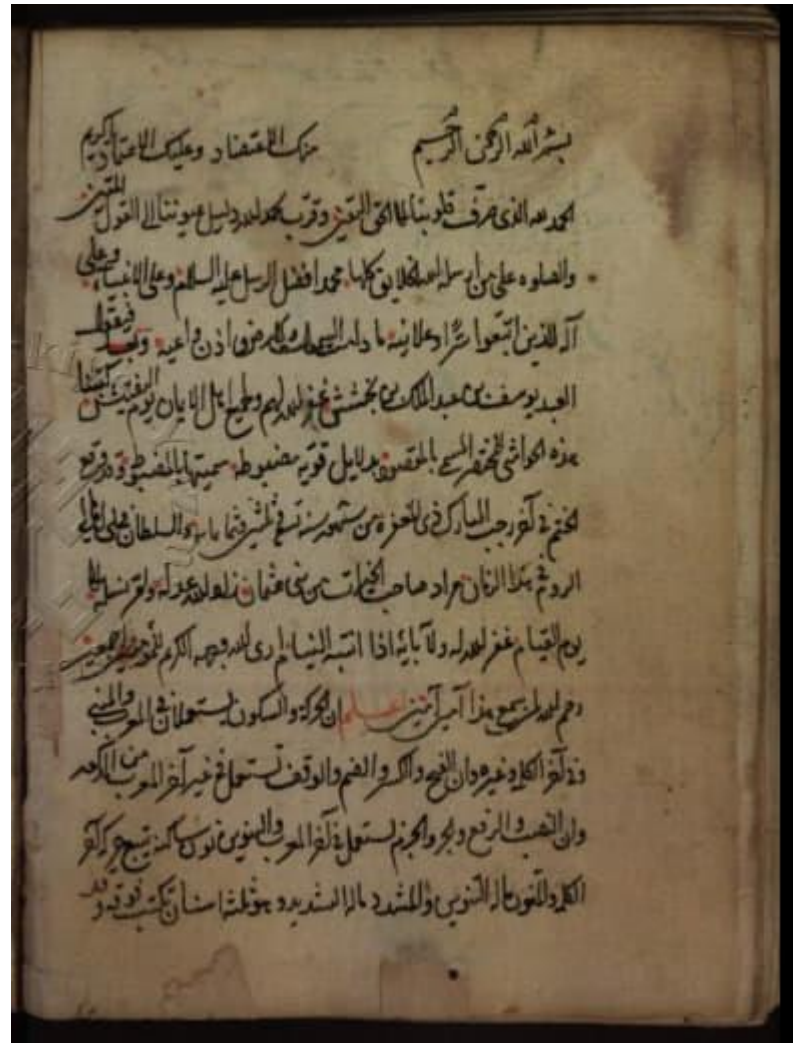 بسم الله الرحمن الرحيم منك الاعتضاد وعليك الاعتماد يا كريم
الحمد لله الذى صرف قلوبنا الى الحق اليقين وقرب بحمد الله دليل عيوننا الى القول المتين
والصلوه على من ارسله الله الى الخلايق كلها محمد افضل الرسل عليه السلام وعلى الانبياء وعلى
آله الذين اتبعوا سرا وعلانية ما دامت اذن واعية وبعد فيقول
العبد يوسف بن عبد الملك بن بخشيش غفر الله لهم ولجميع اهل الايمان يوم
هذه الحواشى للمختصر المسمى بالمقصود بدلايل قويه مضبوطه سميتها بالمضبوط وقد وقع
الختم فى آخر رجب المبارك ذى العزة من شهور سنة وثمانمايه والسلطان على
الروم فى هذا الزمان مراد صاحب الخيرات من بنى عثمان
يوم القيام غفر الله له ولآبايه اذا انتبه النيام ارى الله وجهه الكريم اجمعين
رحم الله لمن يسمع هذا آمين آمين اعلم ان الحركة والسكون يستعملان فى المعرب والمبنى
وفى آخر الكلمة وغيره وان الفتح والكسر والضم والوقف تستعمل فى غير آخر المعرب من الكلمه
وان النصب والرفع والجر والجزم تستعمل فى آخر المعرب والتنوين نون ساكنة تتبع حركة آخر
الكلمة والمنون ماله التنوين والمشدد ماله التشديد وهو تكتب فوقه وقد